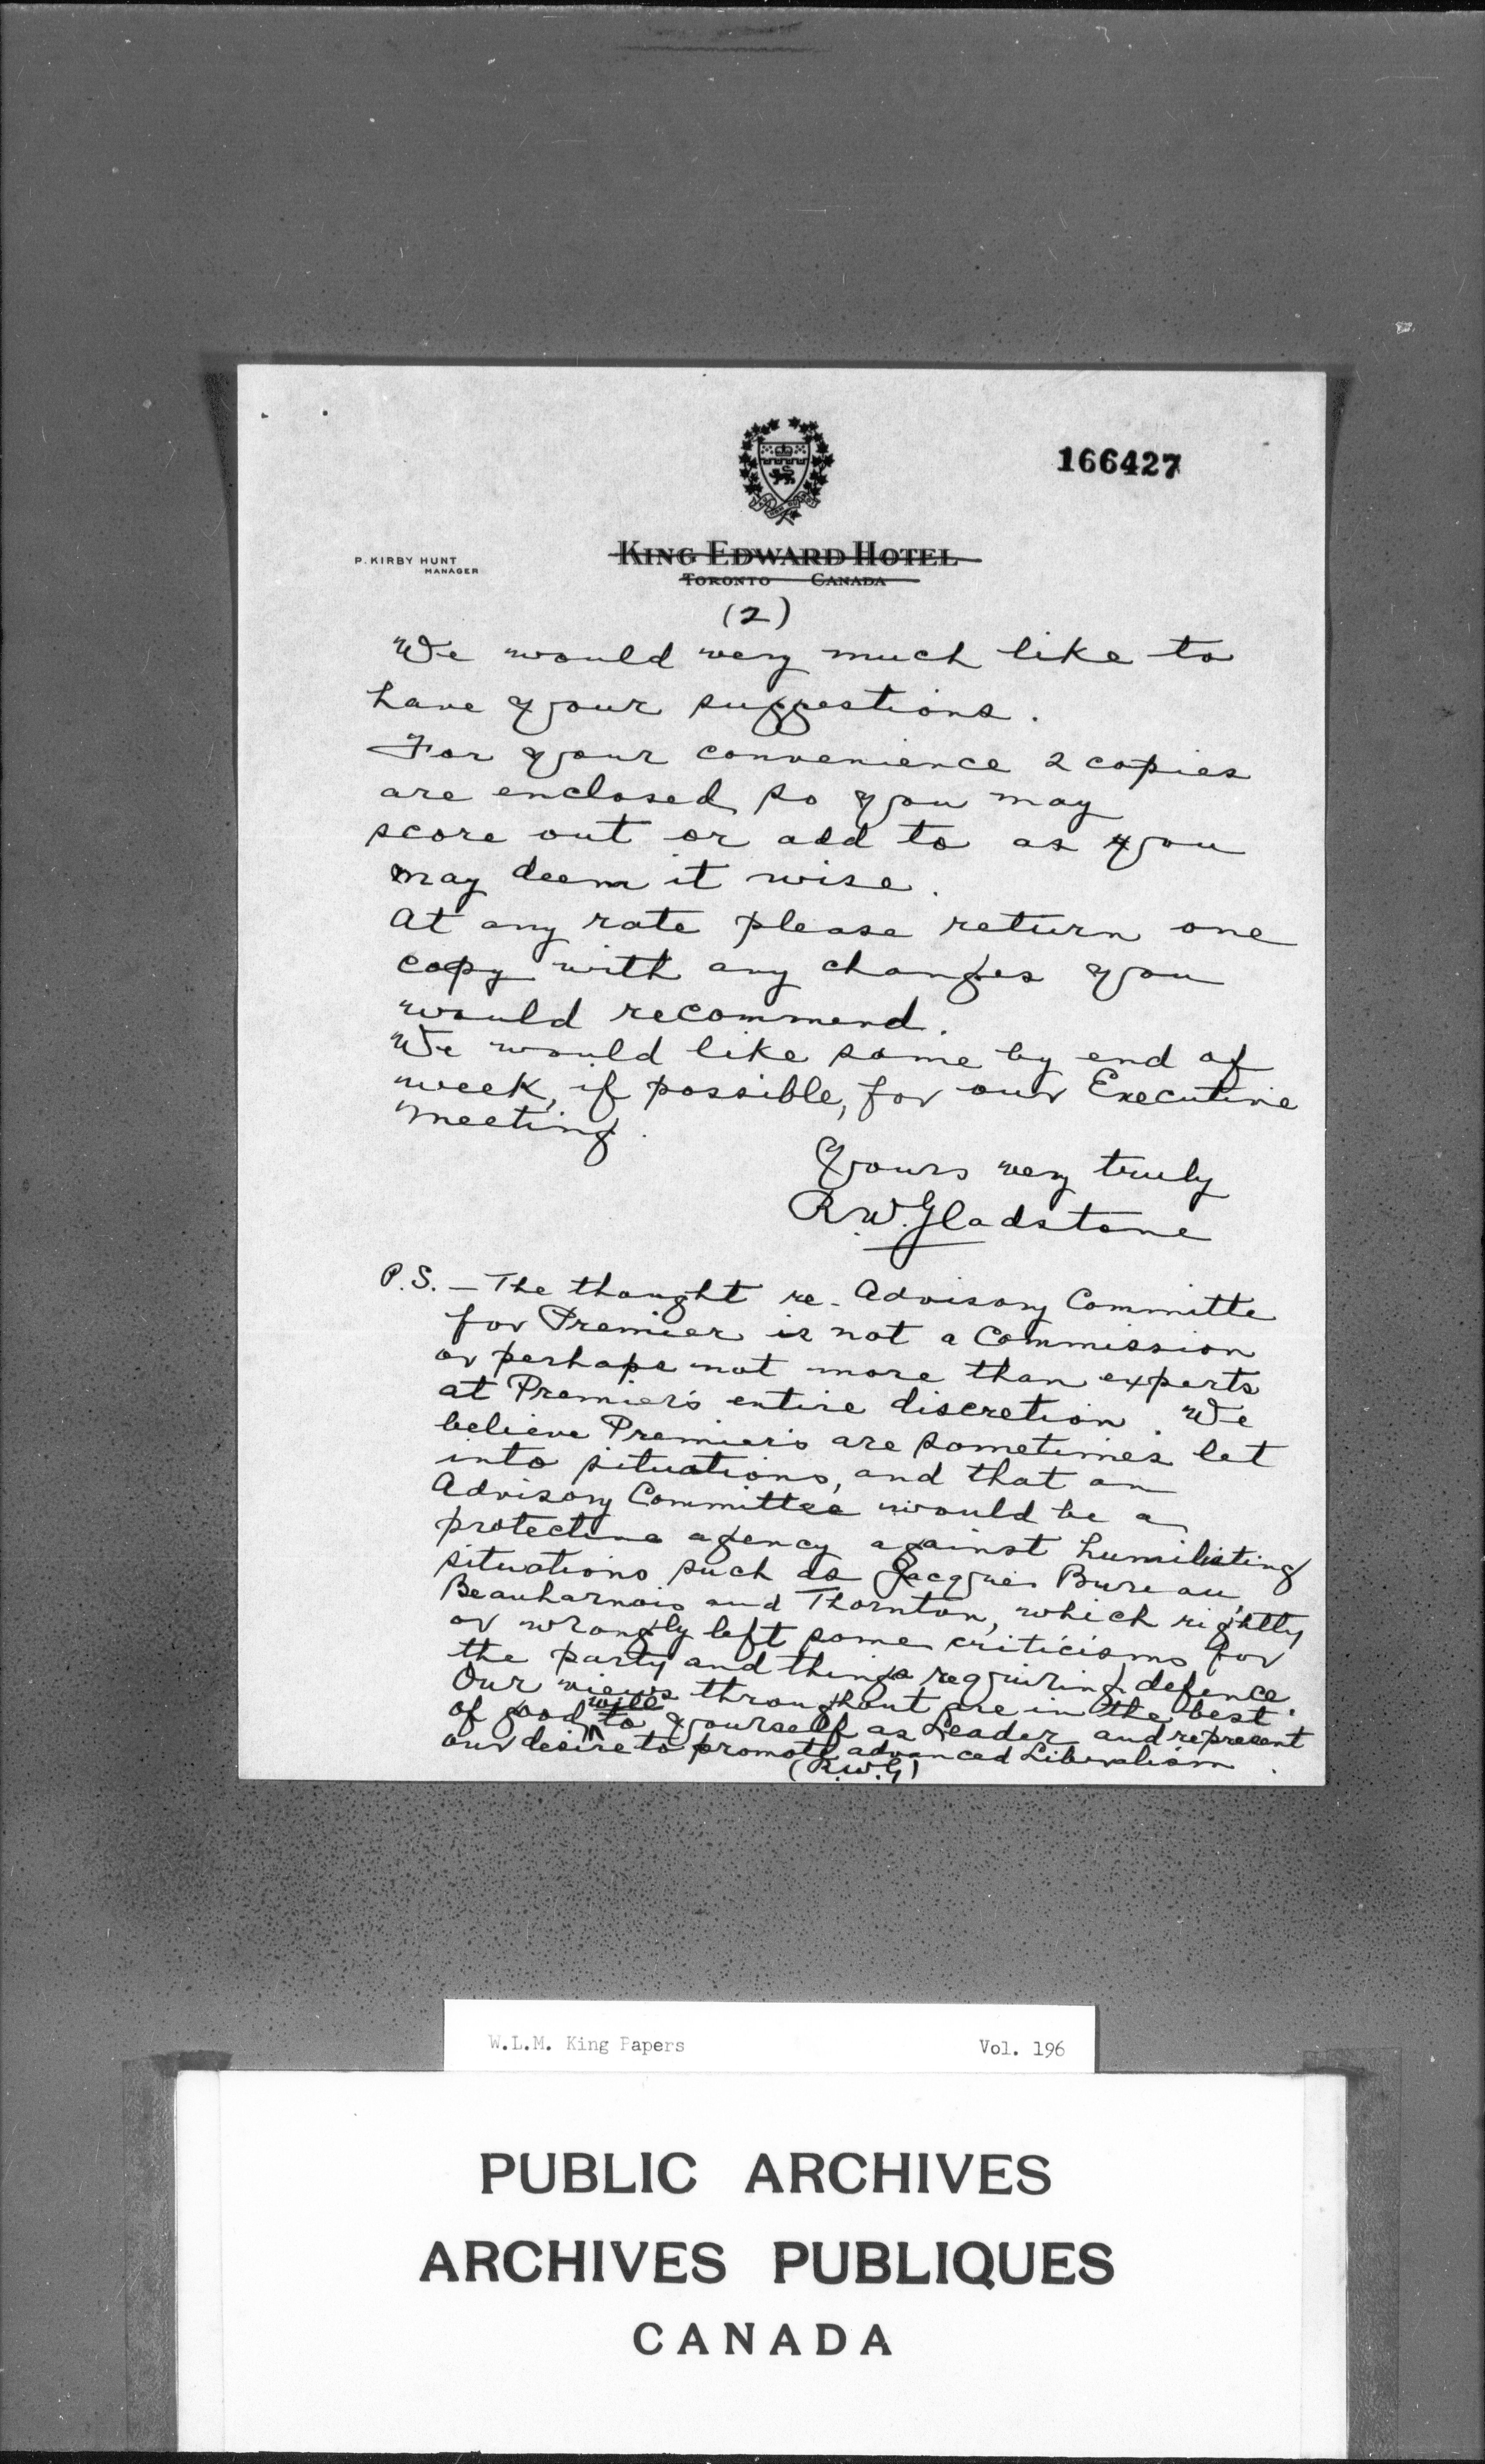 166427
P. KIRBY HUNT
MANAGER
KING EDWARD HOTEL
TORONTO CANADA
(2)
We would very much like to
have your suggestions.
For your convenience 2 copies
are enclosed so you may
score out or add to as you
may deem it wise.
At any rate please return one
copy with any changes you
would recommend.
We would like same by end of
week, if possible, for our Executive
meeting.
Yours very truly
R.W. Gladstone
P.S. — The thought re. Advisory Committe
for Premier is not a Commission
or perhaps not more than experts
at Premier's entire discretion. We
believe Premier's are sometimes let
into situations, and that an
Advisory Committee would be a
protective agency against humiliating
situations such as Jacques Bureau,
Beauharnois and Thornton, which rightly
or wrongly left some criticisms for
the party and things requiring defence.
Our views throughout are in the best
of good will to yourself as Leader and represent
our desire to promote advanced Liberalism.
(R.W.G)
W.L.M. King Papers Vol. 196
PUBLIC ARCHIVES
ARCHIVES PUBLIQUES
CANADA